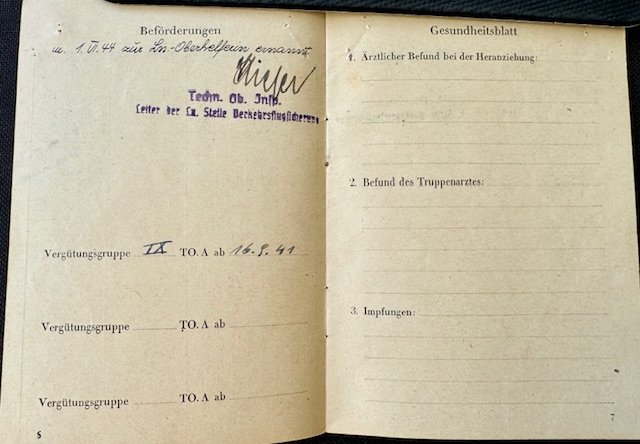 Beförderungen
m. 1. VI. 44 zur Ln.-Oberhelferin ernannt.
Techn. Ob. Insp.
Leiter der Ln. Stelle Verkehrsflugsicherung
Vergütungsgruppe IX TO. A ab 16.9.41
Vergütungsgruppe TO. A ab
Vergütungsgruppe TO. A ab
6
Gesundheitsblatt
1. Ärztlicher Befund bei der Heranziehung:
2. Befund des Truppenarztes:
3. Impfungen:
7